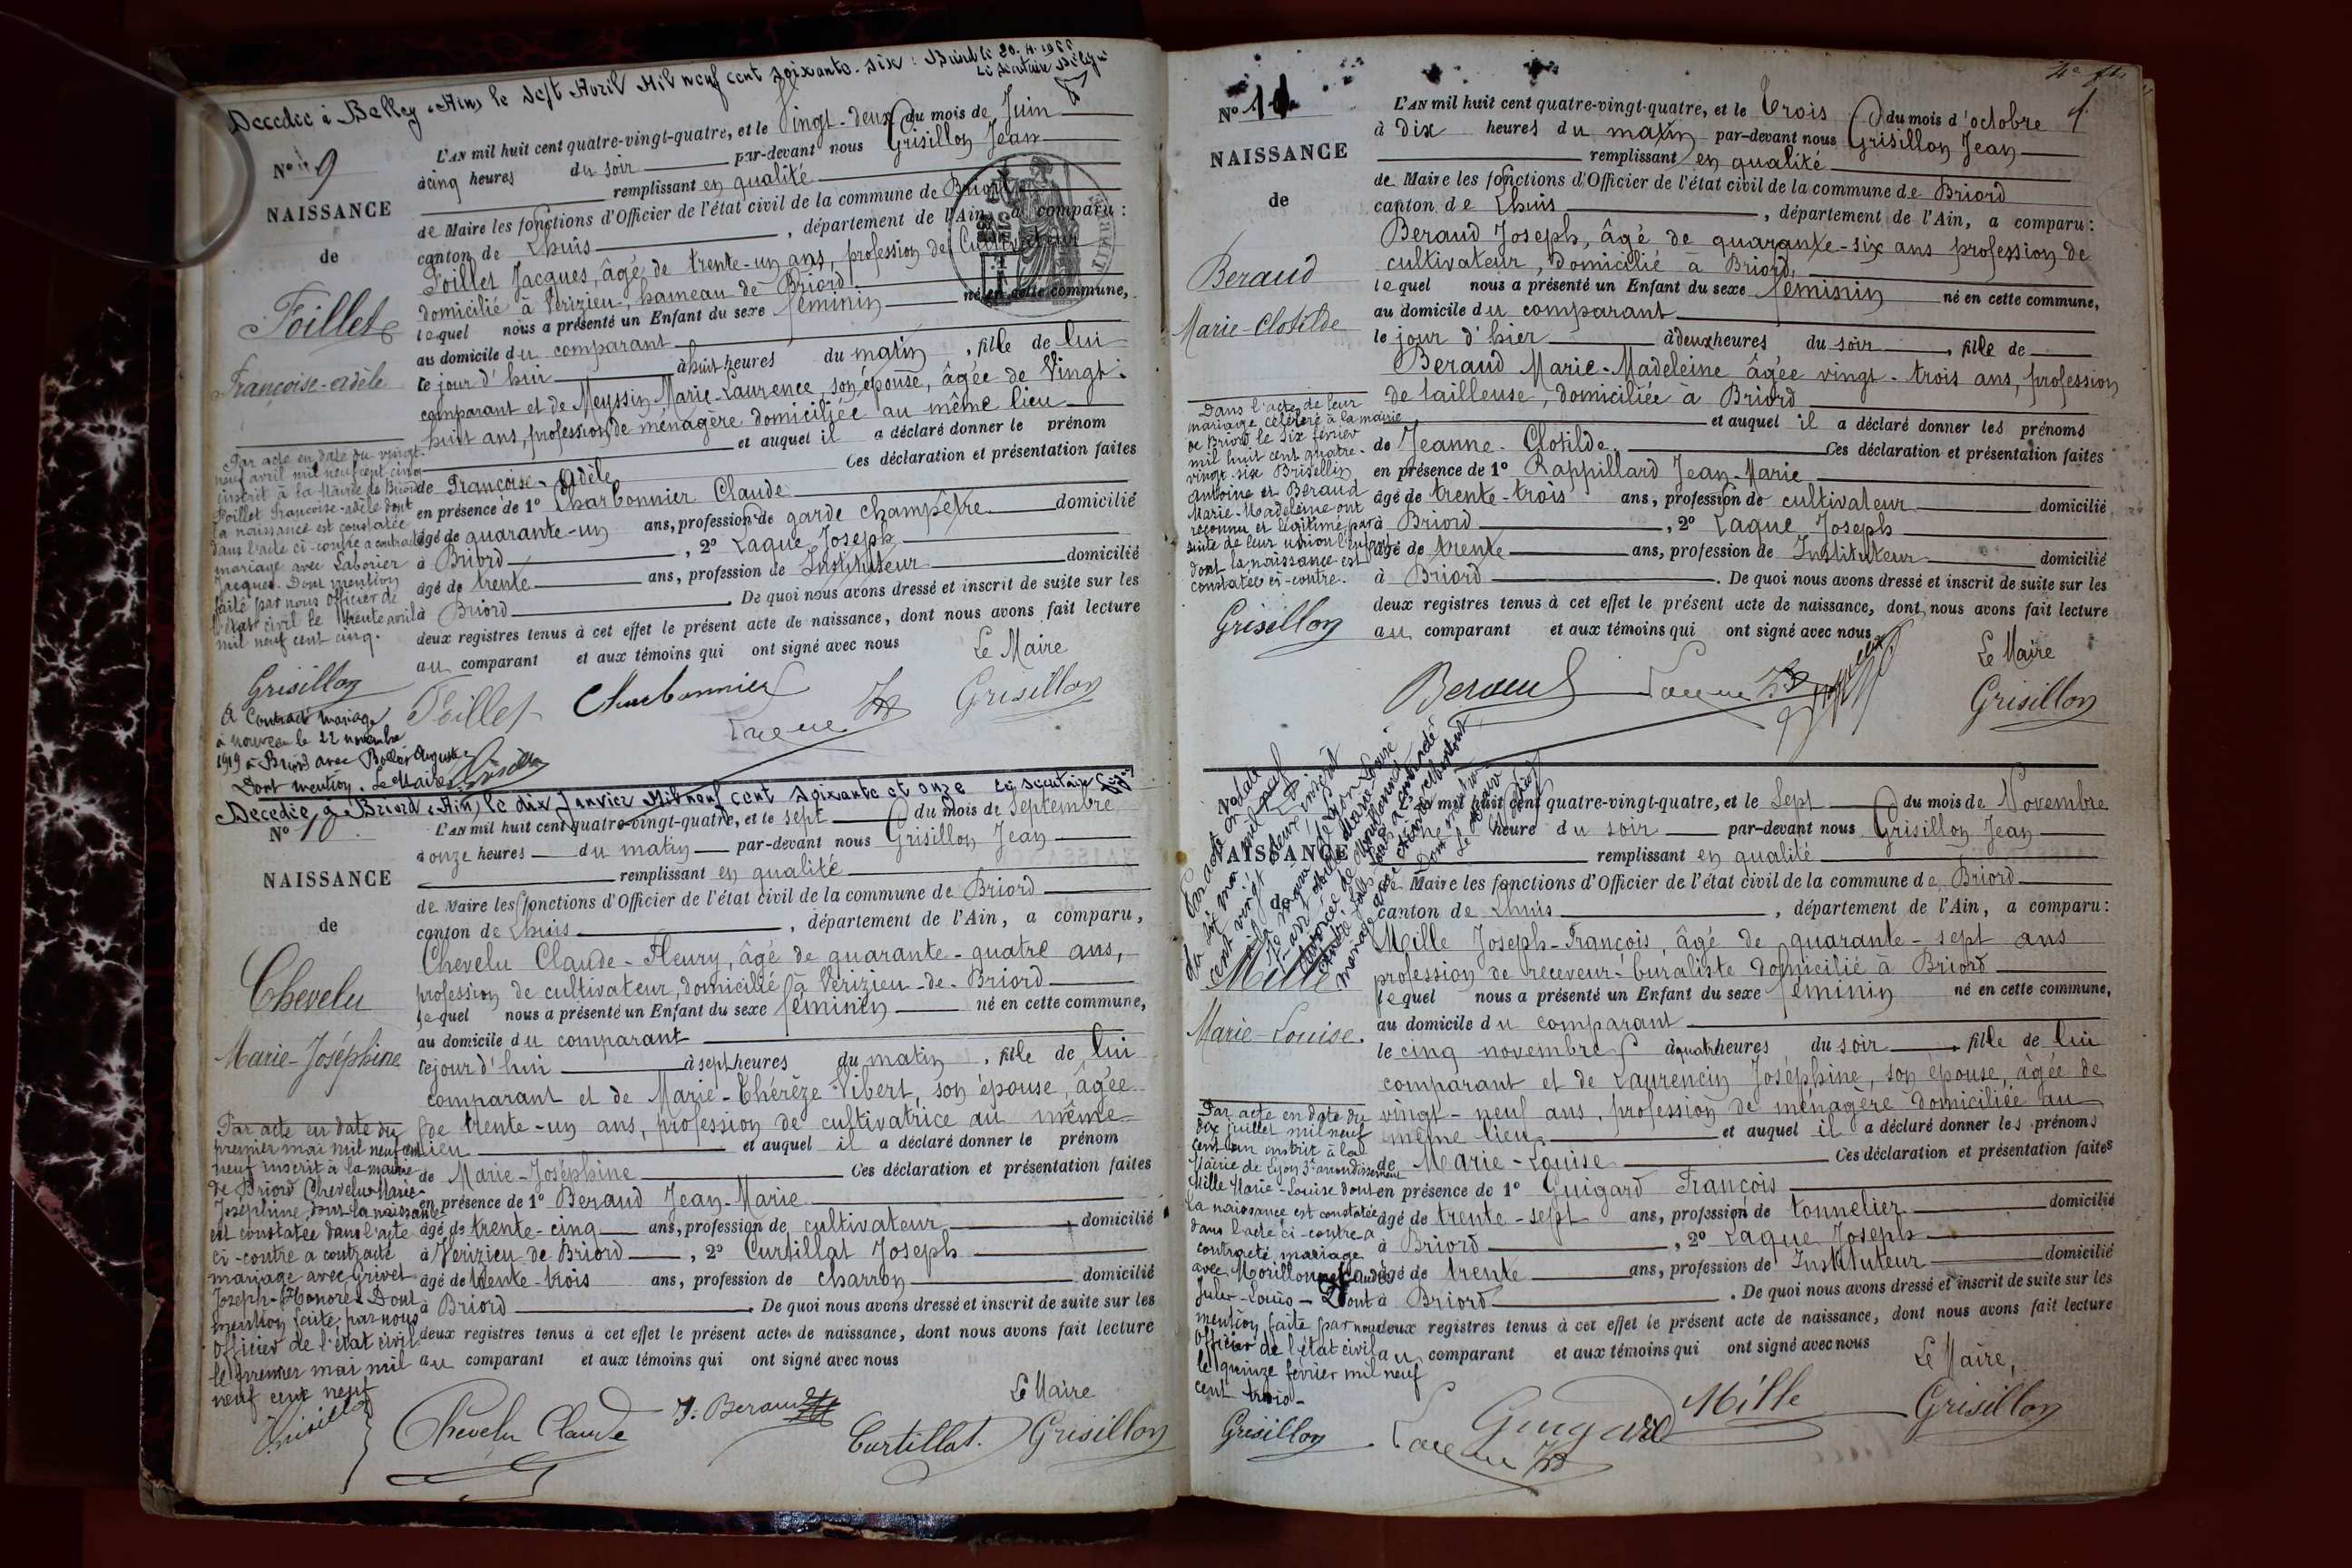 Decedée à Belley (Ain) le sept Avril Mil neuf cent soixante-six : Briord le 20.4.1966
Le secrétaire
N° 9
NAISSANCE
de
Foillet
Françoise-Adèle
L'AN mil huit cent quatre-vingt-quatre, et le Vingt-deux du mois de Juin
à cinq heures du soir par-devant nous Grisillon Jean
remplissant en qualité
de Maire les fonctions d'Officier de l'état civil de la commune de Briord
canton de Lhuis, département de l'Ain, a comparu :
Foillet Jacques, âgé de trente-un ans, profession de Cultivateur
domicilié à Vérizieu, hameau de Briord
lequel nous a présenté un Enfant du sexe féminin né en cette commune,
au domicile du comparant
le jour d'hui à huit heures du matin, fille de lui
comparant et de Meyssin Marie-Laurence, son épouse, âgée de Vingt-
huit ans, profession de ménagère domiciliée au même lieu
et auquel il a déclaré donner le prénom
de Françoise-Adèle Ces déclaration et présentation faites
en présence de 1° Charbonnier Claude
âgé de quarante-un ans, profession de garde champêtre domicilié
à Briord, 2° Laque Joseph
âgé de trente ans, profession de Instituteur domicilié
à Briord. De quoi nous avons dressé et inscrit de suite sur les
deux registres tenus à cet effet le présent acte de naissance, dont nous avons fait lecture
au comparant et aux témoins qui ont signé avec nous
Le Maire
Foillet Charbonnier Laque Grisillon
Par acte en date du vingt-
neuf avril mil neuf cent cinq
inscrit à la Mairie de Briord
Foillet Françoise-Adèle dont
la naissance est constatée
dans l'acte ci-contre a contracté
mariage avec Laborier
Jacques. Dont mention
faite par nous Officier de
l'état civil le trente avril
mil neuf cent cinq.
Grisillon
A Contracté mariage
à nouveau le 22 novembre
1919 à Briord avec Auguste
Dont mention. Le Maire
Decedée à Briord (Ain) le dix Janvier Mil neuf cent soixante et onze Le secrétaire
N° 10
NAISSANCE
de
Chevelu
Marie-Joséphine
L'AN mil huit cent quatre-vingt-quatre, et le sept du mois de Septembre
à onze heures du matin par-devant nous Grisillon Jean
remplissant en qualité
de Maire les fonctions d'Officier de l'état civil de la commune de Briord
canton de Lhuis, département de l'Ain, a comparu,
Chevelu Claude-Fleury, âgé de quarante-quatre ans,
profession de cultivateur, domicilié à Vérizieu-de-Briord
lequel nous a présenté un Enfant du sexe féminin né en cette commune,
au domicile du comparant
le jour d'hui à sept heures du matin, fille de lui
comparant et de Marie-Thérèze Vibert, son épouse, âgée
de trente-un ans, profession de cultivatrice au même
lieu et auquel il a déclaré donner le prénom
de Marie-Joséphine Ces déclaration et présentation faites
en présence de 1° Beraud Jean-Marie
âgé de trente-cinq ans, profession de cultivateur domicilié
à Vérizieu de Briord, 2° Curtillat Joseph
âgé de trente-trois ans, profession de charron domicilié
à Briord. De quoi nous avons dressé et inscrit de suite sur les
deux registres tenus à cet effet le présent acte de naissance, dont nous avons fait lecture
au comparant et aux témoins qui ont signé avec nous
Le Maire
Chevelu Claude J. Beraud Curtillat. Grisillon
Par acte en date du
premier mai mil neuf cent
neuf inscrit à la mairie
de Briord Chevelu Marie-
Joséphine dont la naissance
est constatée dans l'acte
ci-contre a contracté
mariage avec Grivet
Joseph-Honoré. Dont
mention faite par nous
Officier de l'état civil
le premier mai mil
neuf cent neuf
Grisillon
N° 11
NAISSANCE
de
Beraud
Marie-Clotilde
L'AN mil huit cent quatre-vingt-quatre, et le trois du mois d'octobre
à dix heures du matin par-devant nous Grisillon Jean
remplissant en qualité
de Maire les fonctions d'Officier de l'état civil de la commune de Briord
canton de Lhuis, département de l'Ain, a comparu :
Beraud Joseph, âgé de quarante-six ans profession de
cultivateur, domicilié à Briord,
lequel nous a présenté un Enfant du sexe féminin né en cette commune,
au domicile du comparant
le jour d'hier à deux heures du soir, fille de
Beraud Marie-Madeleine âgée vingt-trois ans, profession
de tailleuse, domiciliée à Briord
et auquel il a déclaré donner les prénoms
de Jeanne-Clotilde. Ces déclaration et présentation faites
en présence de 1° Rappillard Jean-Marie
âgé de trente-trois ans, profession de cultivateur domicilié
à Briord, 2° Laque Joseph
âgé de trente ans, profession de Instituteur domicilié
à Briord. De quoi nous avons dressé et inscrit de suite sur les
deux registres tenus à cet effet le présent acte de naissance, dont nous avons fait lecture
au comparant et aux témoins qui ont signé avec nous
Le Maire
Beraud Laque Grisillon
Dans l'acte de leur
mariage célébré à la mairie
de Briord le six février
mil huit cent quatre-
vingt-six Brisellin
Antoine et Beraud
Marie-Madeleine ont
reconnu et légitimé par
suite de leur union l'enfant
dont la naissance est
constatée ci-contre.
Grisillon
NAISSANCE
de
Mille
Marie-Louise.
L'AN mil huit cent quatre-vingt-quatre, et le Sept du mois de Novembre
à une heure du soir par-devant nous Grisillon Jean
remplissant en qualité
de Maire les fonctions d'Officier de l'état civil de la commune de Briord
canton de Lhuis, département de l'Ain, a comparu :
Mille Joseph-François, âgé de quarante-sept ans
profession de receveur-buraliste domicilié à Briord
lequel nous a présenté un Enfant du sexe féminin né en cette commune,
au domicile du comparant
le cinq novembre à quatre heures du soir, fille de lui
comparant et de Laurencin Joséphine, son épouse, âgée de
vingt-neuf ans, profession de ménagère domiciliée au
même lieu, et auquel il a déclaré donner les prénoms
de Marie-Louise Ces déclaration et présentation faites
en présence de 1° Guigard François
âgé de trente-sept ans, profession de tonnelier domicilié
à Briord, 2° Laque Joseph
âgé de trente ans, profession de Instituteur domicilié
à Briord. De quoi nous avons dressé et inscrit de suite sur les
deux registres tenus à cet effet le présent acte de naissance, dont nous avons fait lecture
au comparant et aux témoins qui ont signé avec nous
Le Maire,
Laque Guigard Mille Grisillon
Par acte en date du
dix juillet mil neuf
cent un inscrit à la
Mairie de Lyon 3e arrondissement
Mille Marie-Louise dont
la naissance est constatée
dans l'acte ci-contre a
contracté mariage
avec Claude
Jules-Louis - Dont
mention faite par nous
Officier de l'état civil
le quinze février mil neuf
cent trois-
Grisillon